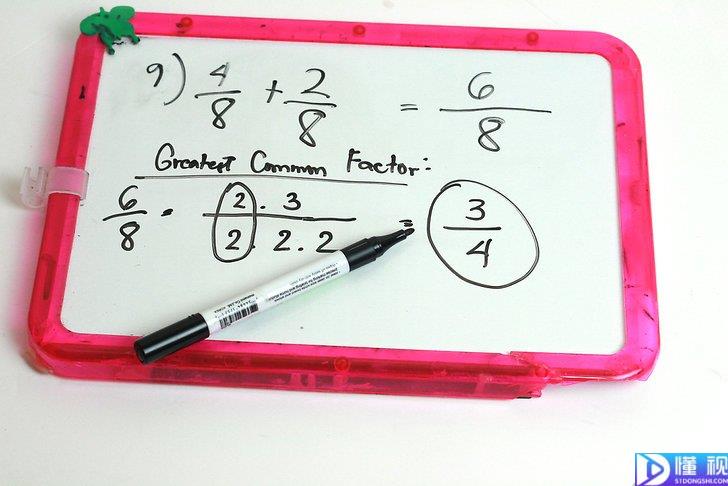 9) 4/8 + 2/8 = 6/8
Greatest Common Factor:
6/8 = 2 · 3 / 2 · 2 · 2 = 3/4
懂视
51DONGSHI.COM